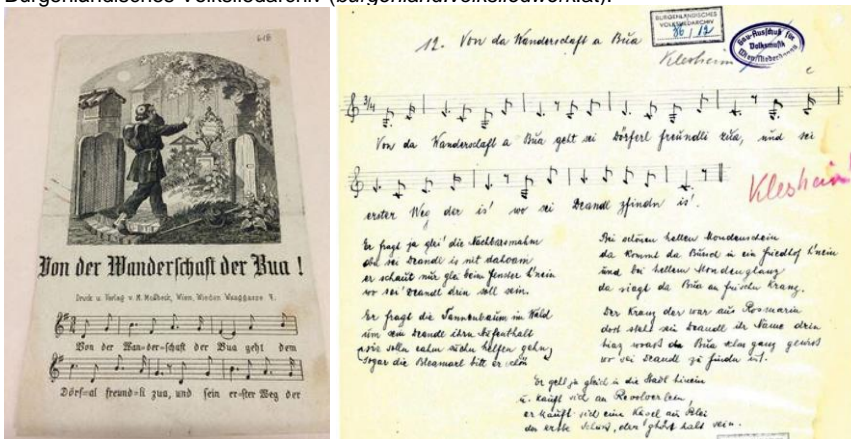 Burgenländisches Volksliedarchiv (burgenland.volksliedwerk.at).
618
Von der Wanderschaft der Bua !
Druck u. Verlag v. M. Moßbeck, Wien, Wieden Waaggasse 7.
Von der Wan=der=schaft der Bua geht dem
Dörf=al freund=li zua, und sein er=ster Weg der
BURGENLÄNDISCHES
VOLKSLIEDARCHIV
86 / 12
Gau-Ausschuß für
Volksmusik
12. Von da Wanderschaft a Bua
Klesheim
3/4
Von da Wanderschaft a Bua geht sei Dörferl freundli zua, und sei
Klesheim
erster Weg der is' wo sei Deandl zfindn is'.
Er fragt ja glei' die Nachbarsmahm
obs sei Deandl is nit dahoam
er schaut nur glei beim Fenster h'nein
wo sei' Deandl drin soll sein.
Er fragt die Tannenbaum im Wald
um sein Deandl ihrn Aufenthalt
solln eahm suchn helfen gehn
Sogar die Bleamerl bitt er schön
Bei schönen hellen Mondenschein
da kommt da Bua in ein Friedhof h'nein
und bei hellem Mondenglanz
da siagt da Bua an frischn Kranz.
Der Kranz der war aus Rosmarin
dort steht sein Deandl ihr Name drin
hiaz woaß da Bua ganz gewiß
wo sei Deandl zu findn is'.
Er geht ja gleich in die Stadt hinein
u. kauft sich an Revolver ein,
er kauft sich eine Kugel aus Blei
der erste Schuß, der g'hört halt sein.